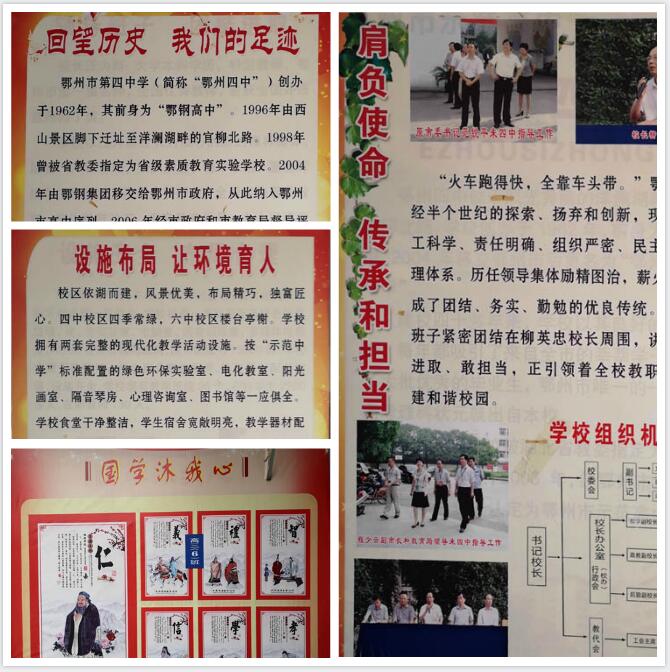 回望历史 我们的足迹
鄂州市第四中学（简称“鄂州四中”）创办
于1962年，其前身为“鄂钢高中”。1996年由西
山景区脚下迁址至洋澜湖畔的官柳北路。1998年
曾被省教委指定为省级素质教育实验学校。2004
年由鄂钢集团移交给鄂州市政府，从此纳入鄂州
设施布局 让环境育人
校区依湖而建，风景优美，布局精巧，独富匠
心。四中校区四季常绿，六中校区楼台亭榭。学校
拥有两套完整的现代化教学活动设施。按“示范中
学”标准配置的绿色环保实验室、电化教室、阳光
画室、隔音琴房、心理咨询室、图书馆等一应俱全。
学校食堂干净整洁，学生宿舍宽敞明亮，教学器材配
国学沐我心
仁
義
禮
智
信
學
孝
高三6班
肩负使命 传承和担当
指导工作
校长
“火车跑得快，全靠车头带。”鄂
经半个世纪的探索、扬弃和创新，现
工科学、责任明确、组织严密、民主
理体系。历任领导集体励精图治，薪火
成了团结、务实、勤勉的优良传统。
班子紧密团结在柳英忠校长周围，讲
进取、敢担当，正引领着全校教职
建和谐校园。
程少云副市长和教育局领导来四中指导工作
学校组织机
书记校长
校委会
副书记
校长办公室
行政会
（校办）
教学副校长
后勤副校长
教代会
工会主席